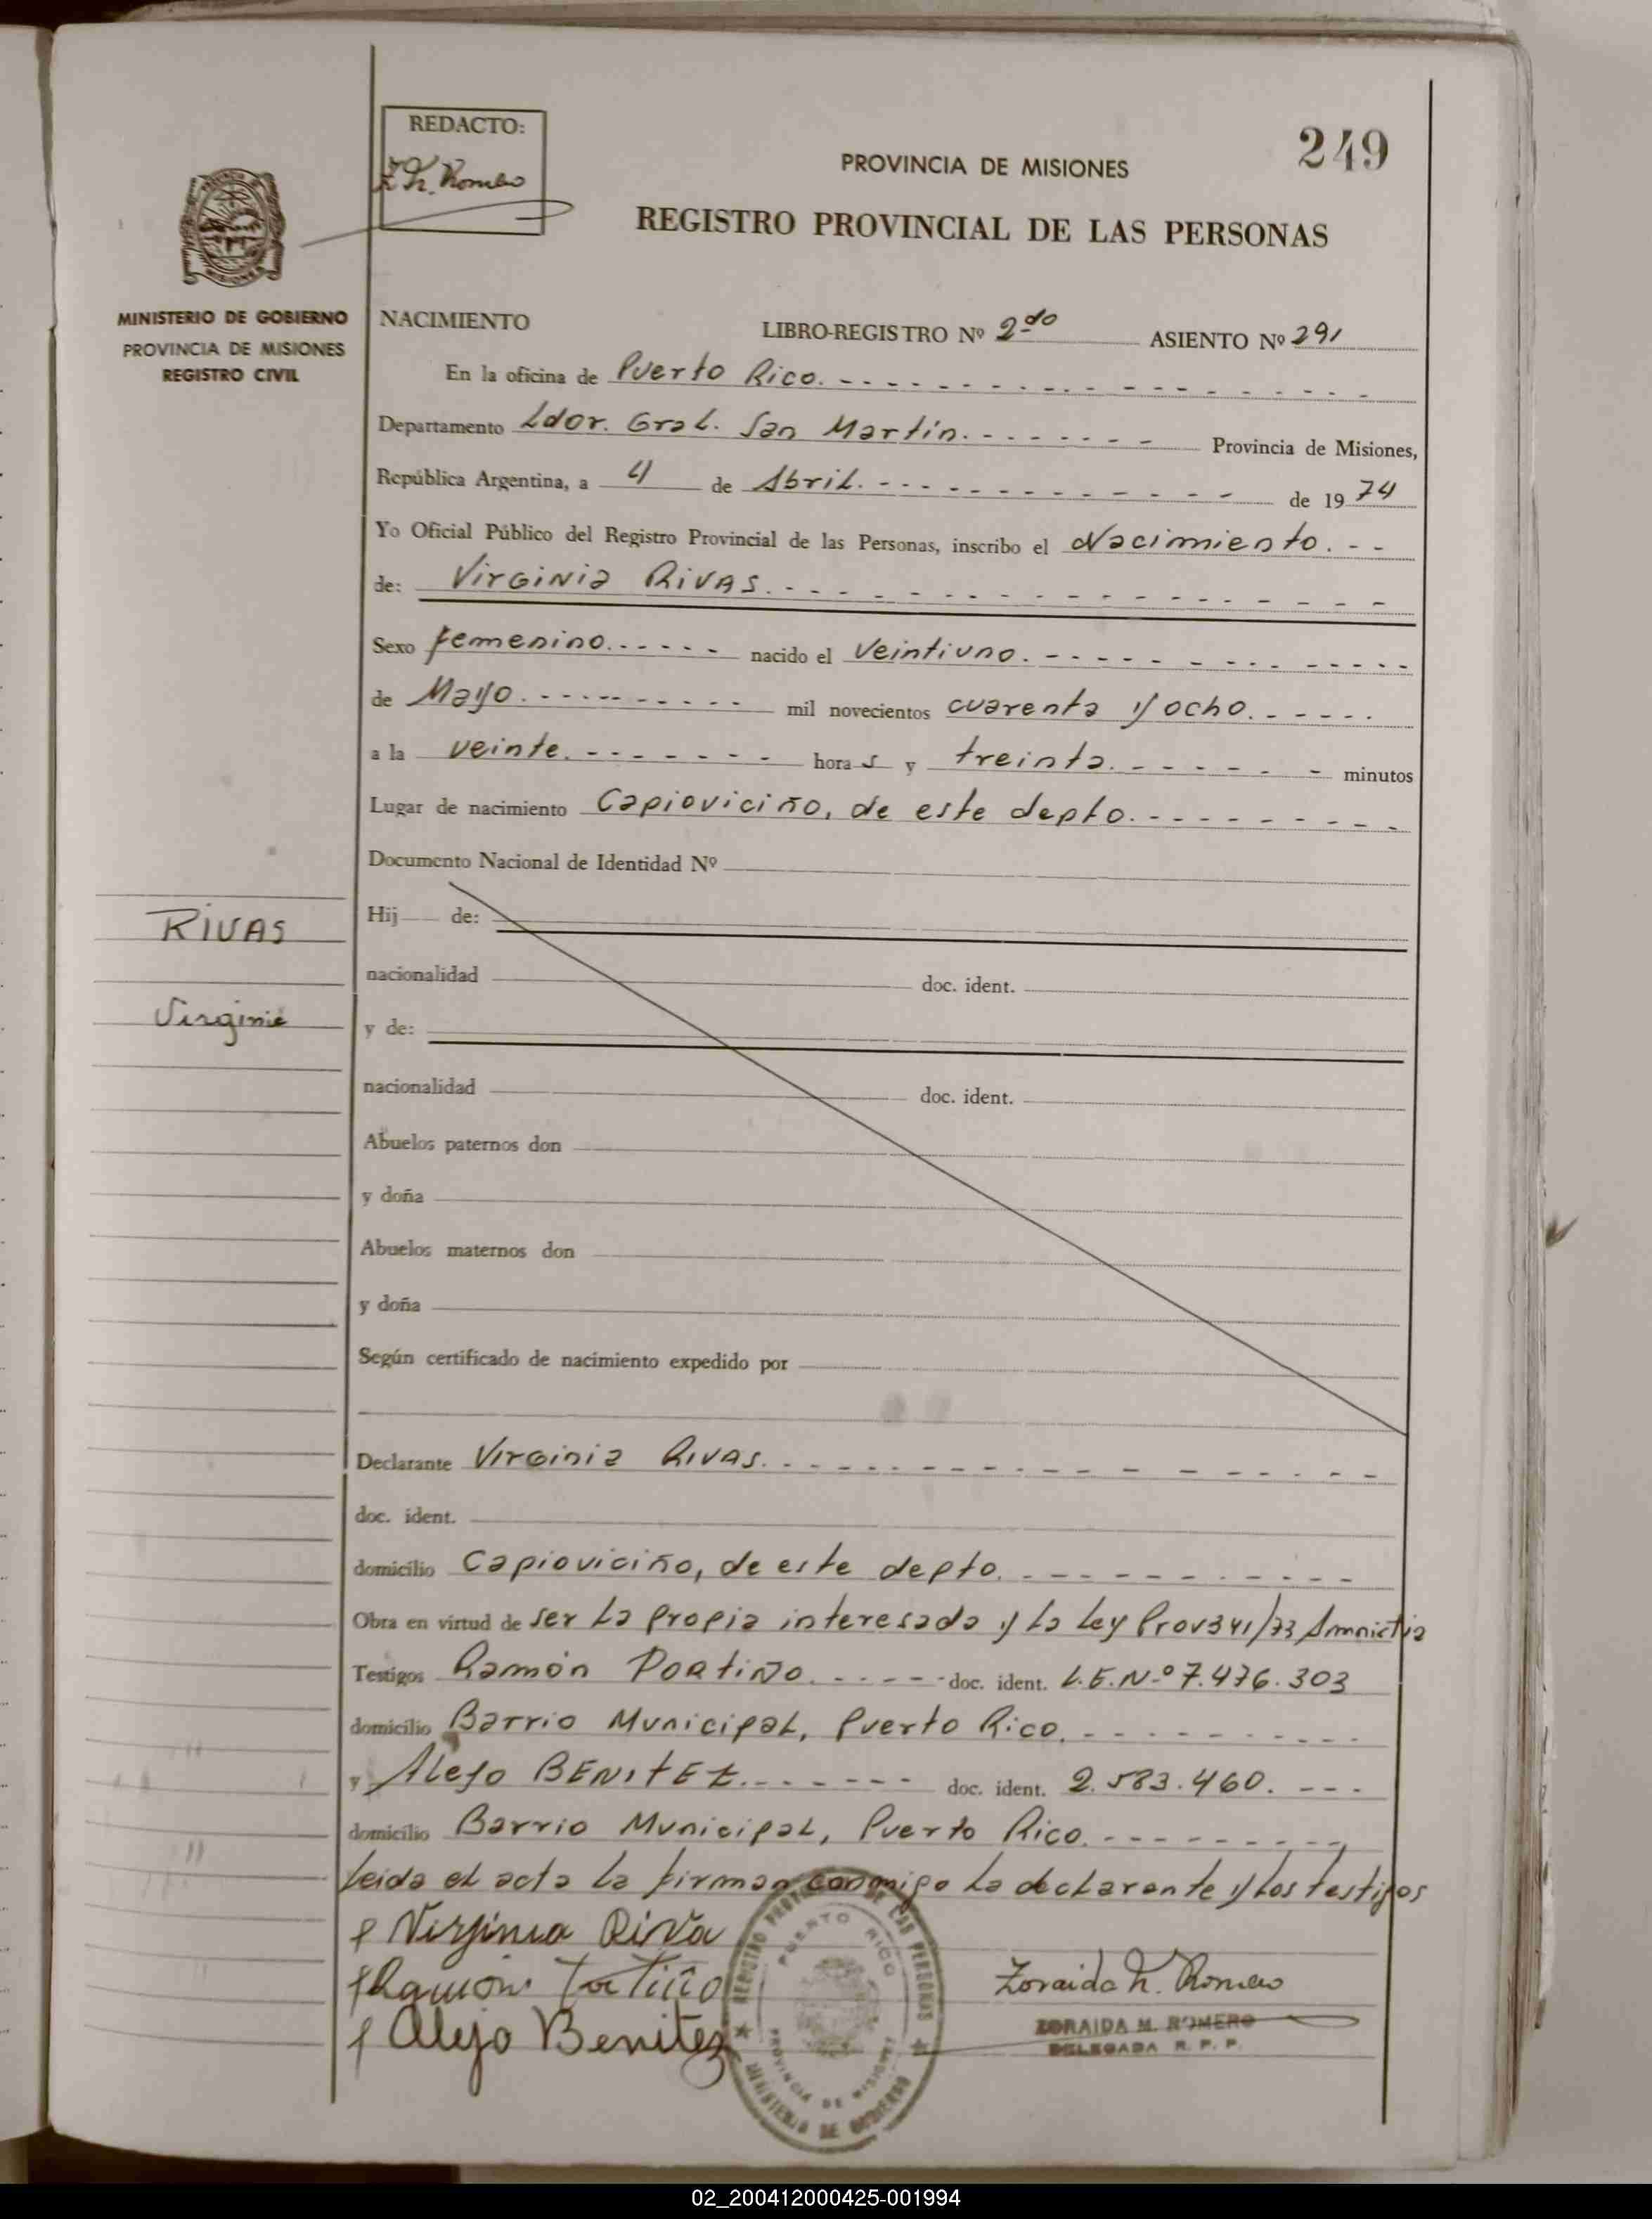 REDACTO:
Z M. Romero
249
PROVINCIA DE MISIONES
REGISTRO PROVINCIAL DE LAS PERSONAS
MISIONES
MINISTERIO DE GOBIERNO
PROVINCIA DE MISIONES
REGISTRO CIVIL
NACIMIENTO LIBRO-REGISTRO Nº 2do ASIENTO Nº 291
En la oficina de Puerto Rico.
Departamento Ldor. Gral. San Martín. Provincia de Misiones,
República Argentina, a 4 de Abril. de 1974
Yo Oficial Público del Registro Provincial de las Personas, inscribo el Nacimiento.
de: Virginia RIVAS.
Sexo femenino. nacido el veintiuno.
de Mayo. mil novecientos cuarenta y ocho.
a la veinte. horas y treinta. minutos
Lugar de nacimiento Capioviciño, de este depto.
Documento Nacional de Identidad Nº
RIVAS
Virginia
Hij de:
nacionalidad doc. ident.
y de:
nacionalidad doc. ident.
Abuelos paternos don
y doña
Abuelos maternos don
y doña
Según certificado de nacimiento expedido por
Declarante Virginia RIVAS.
doc. ident.
domicilio Capioviciño, de este depto.
Obra en virtud de ser la propia interesada y la Ley Prov 341/73 Amnictia
Testigos Ramón PORTIÑO. doc. ident. L.E.Nº 7.476.303
domicilio Barrio Municipal, Puerto Rico.
y Alejo BENITEZ. doc. ident. 2.583.460.
domicilio Barrio Municipal, Puerto Rico.
leida el acta la firman conmigo la declarante y los testigos
Virginia Riva
Ramón
Alejo Benitez
Zoraida M. Romero
ZORAIDA M. ROMERO
DELEGADA R. P. P.
REGISTRO PROVINCIAL DE LAS PERSONAS
PUERTO RICO
PROVINCIA DE MISIONES
MINISTERIO DE GOBIERNO
02_200412000425-001994